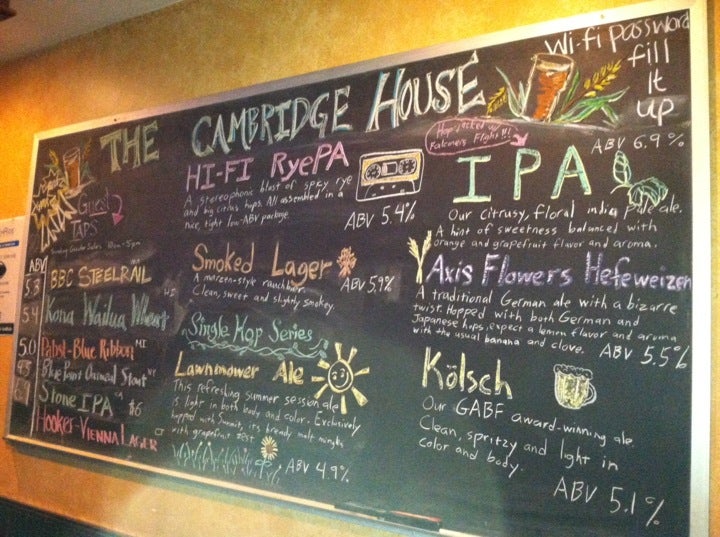 THE CAMBRIDGE HOUSE
Wi-fi password
fill
It
up
GUEST
TAPS
ABV
5.3 BBC STEELRAIL
5.4 Kona Wailua Wheat
5.0 Pabst-Blue Ribbon MI
Blue Point Oatmeal Stout NY
Stone IPA CA $6
Hooker-Vienna Lager
HI-FI RyePA
A stereophonic blast of spicy rye
and big citrus hops. All assembled in a
nice, tight low-ABV package.
ABV 5.4%
Smoked Lager
A marzen-style rauchbier.
Clean, sweet and slightly smokey.
ABV 5.9%
Single Hop Series
Lawnmower Ale
This refreshing summer session ale
is light in both body and color. Exclusively
hopped with Summit, its bready malt mingles
with grapefruit zest.
ABV 4.9%
Hop-Jacked w/
Falconers Flight!!!
IPA
ABV 6.9%
Our citrusy, floral india pale ale.
A hint of sweetness balanced with
orange and grapefruit flavor and aroma.
Axis Flowers Hefeweizen
A traditional German ale with a bizarre
twist. Hopped with both German and
Japanese hops, expect a lemm flavor and aroma
with the usual banana and clove. ABV 5.5%
Kölsch
Our GABF award-winning ale.
Clean, spritzy and light in
color and body.
ABV 5.1%